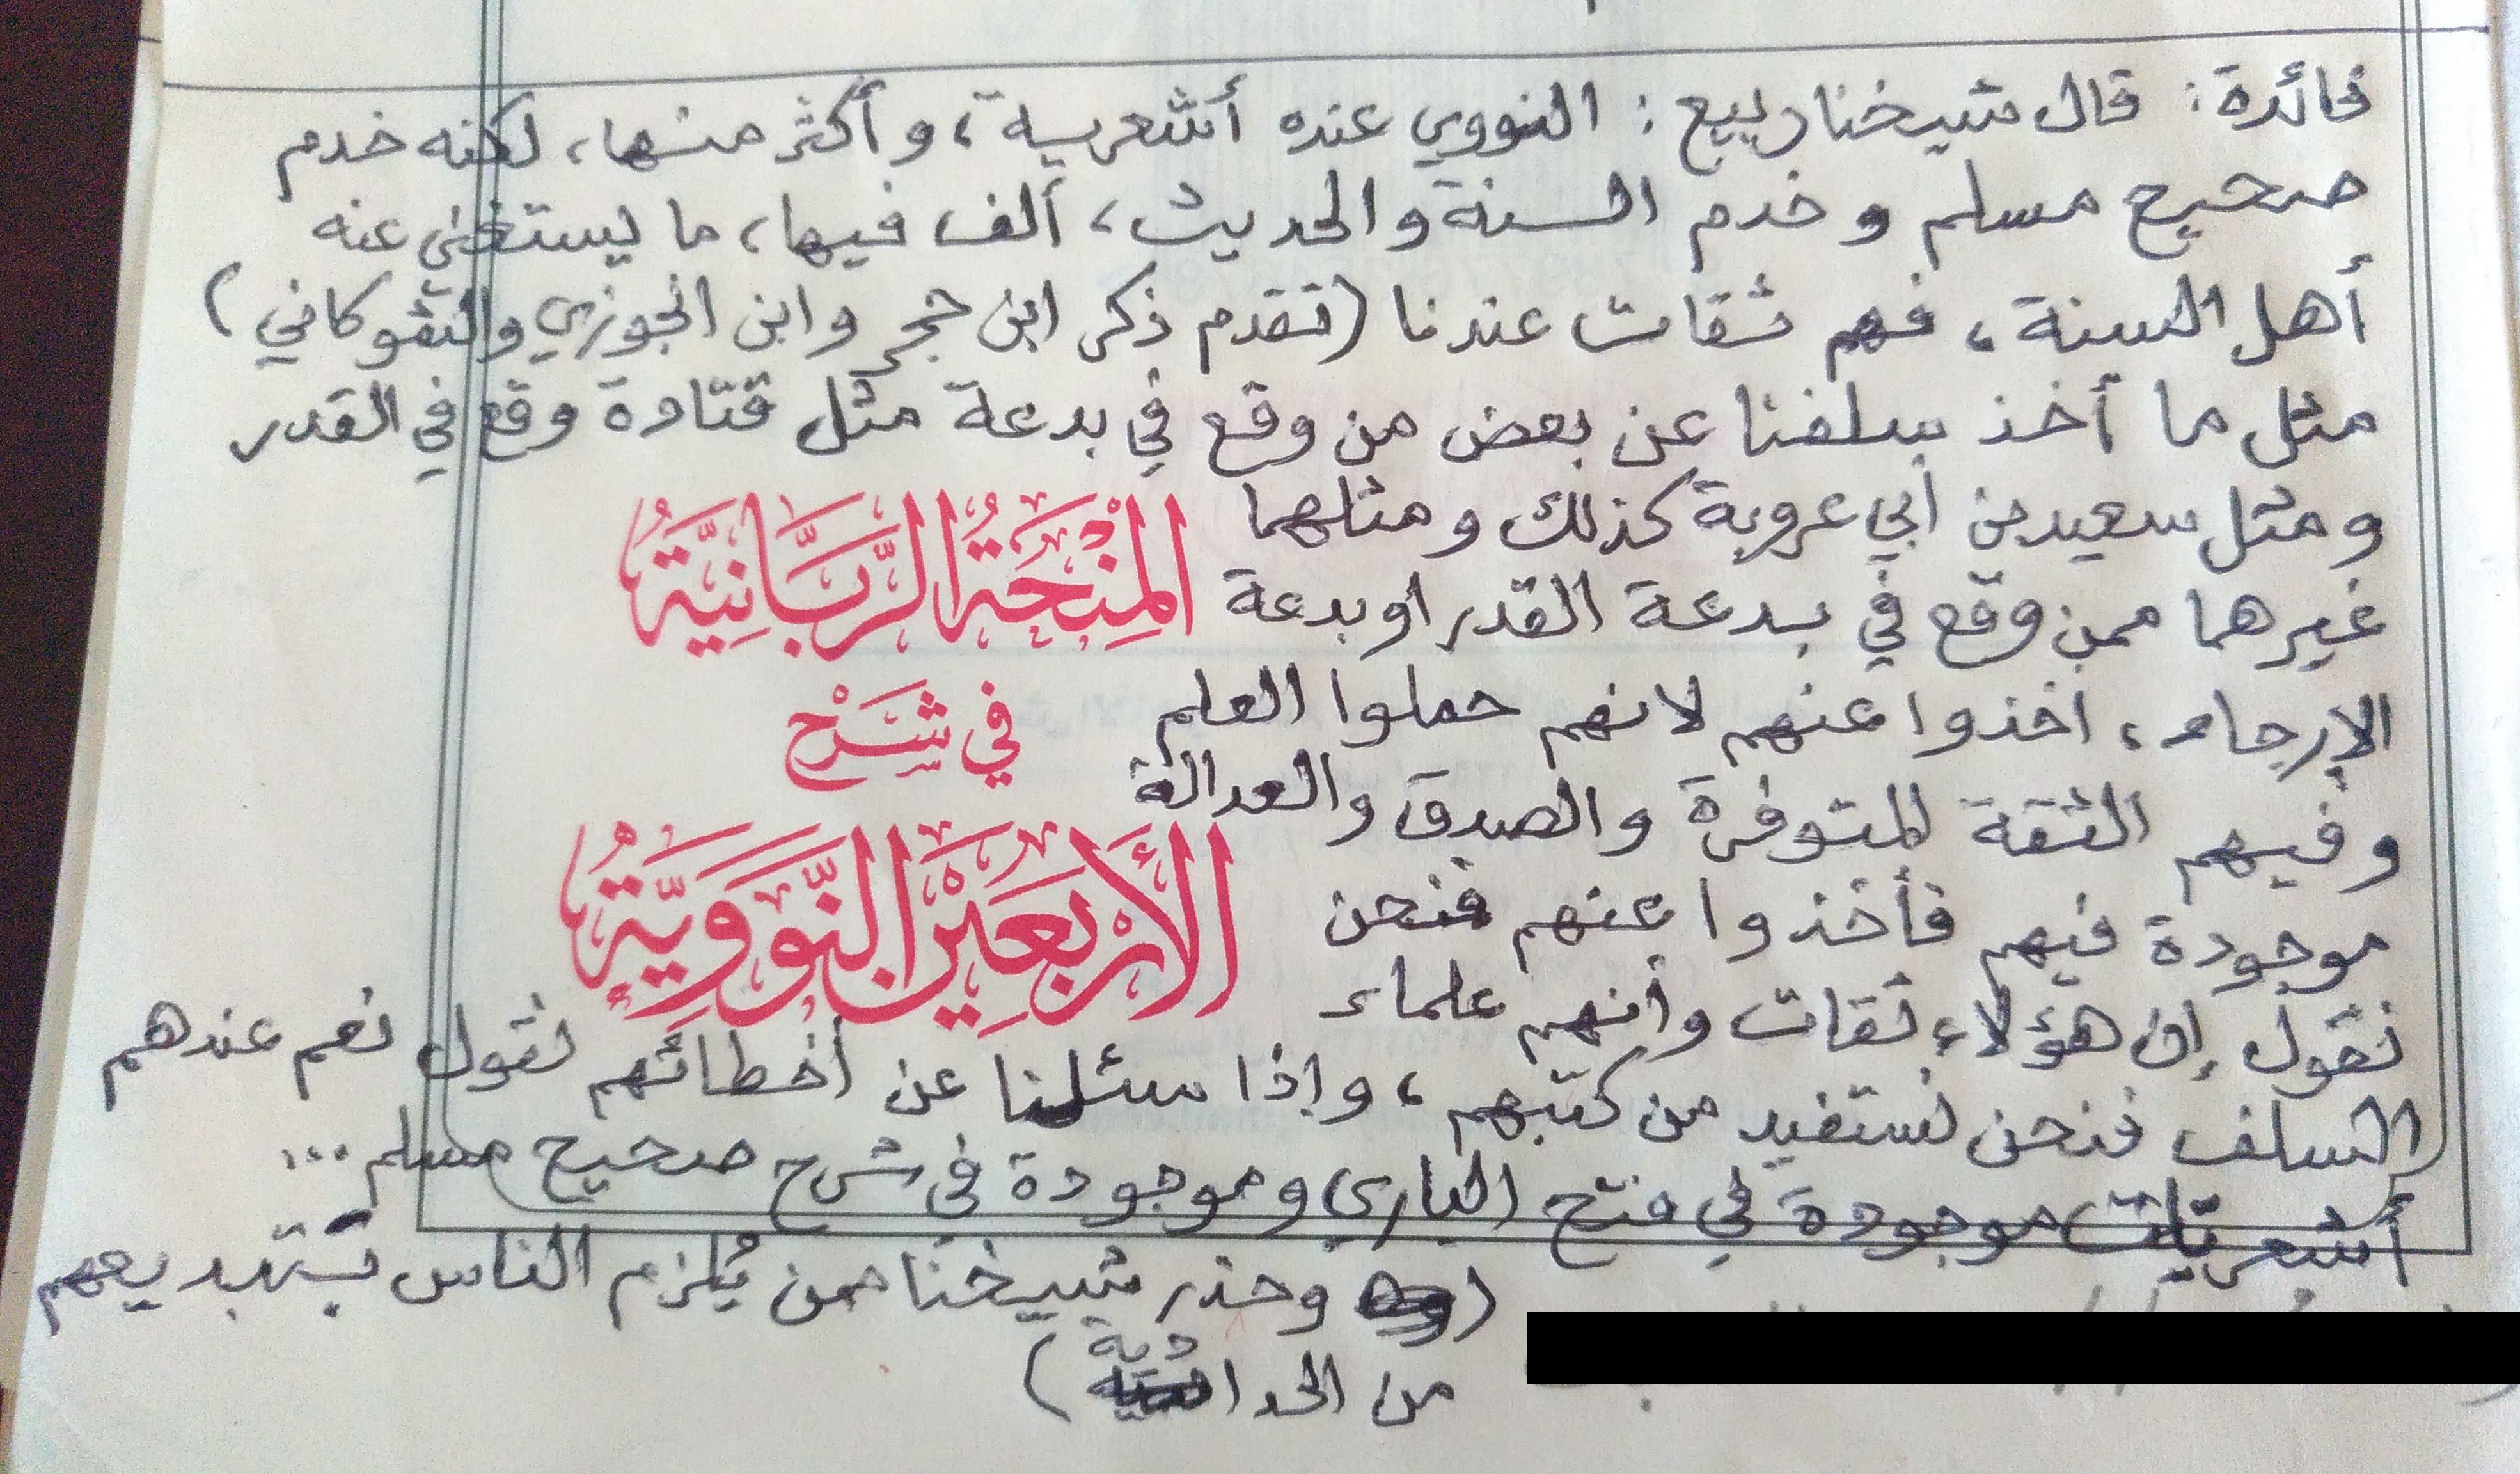 فائدة: قال شيخنا ربيع: النووي عنده أشعرية، وأكثر منها، لكنه خدم
صحيح مسلم وخدم السنة والحديث، ألف فيها، ما يستغني عنه
أهل السنة، فهم ثقات عندنا (تقدم ذكر ابن حجر وابن الجوزي والشوكاني)
مثل ما أخذ سلفنا عن بعض من وقع في بدعة مثل قتادة وقع في القدر
ومثل سعيد بن أبي عروبة كذلك ومثلهما
غيرهما ممن وقع في بدعة القدر او بدعة
الإرجاء، اخذوا عنهم لانهم حملوا العلم
وفيهم الثقة المتوفرة والصدق والعدالة
موجودة فيهم فأخذوا عنهم فنحن
نقول إن هؤلاء ثقات وأنهم علماء
السلف فنحن نستفيد من كتبهم، وإذا سئلنا عن أخطائهم نقول نعم عندهم
أشعريات موجودة في فتح الباري وموجودة في شرح صحيح مسلم ...
(وحذر شيخنا ممن يُلزم الناس بتبديعهم
من الحدادية)
المِنْحَةُ الرَّبَّانِيَّةُ
في شَرْح
الأَرْبَعِيْنَ النَّوَوِيَّةِ